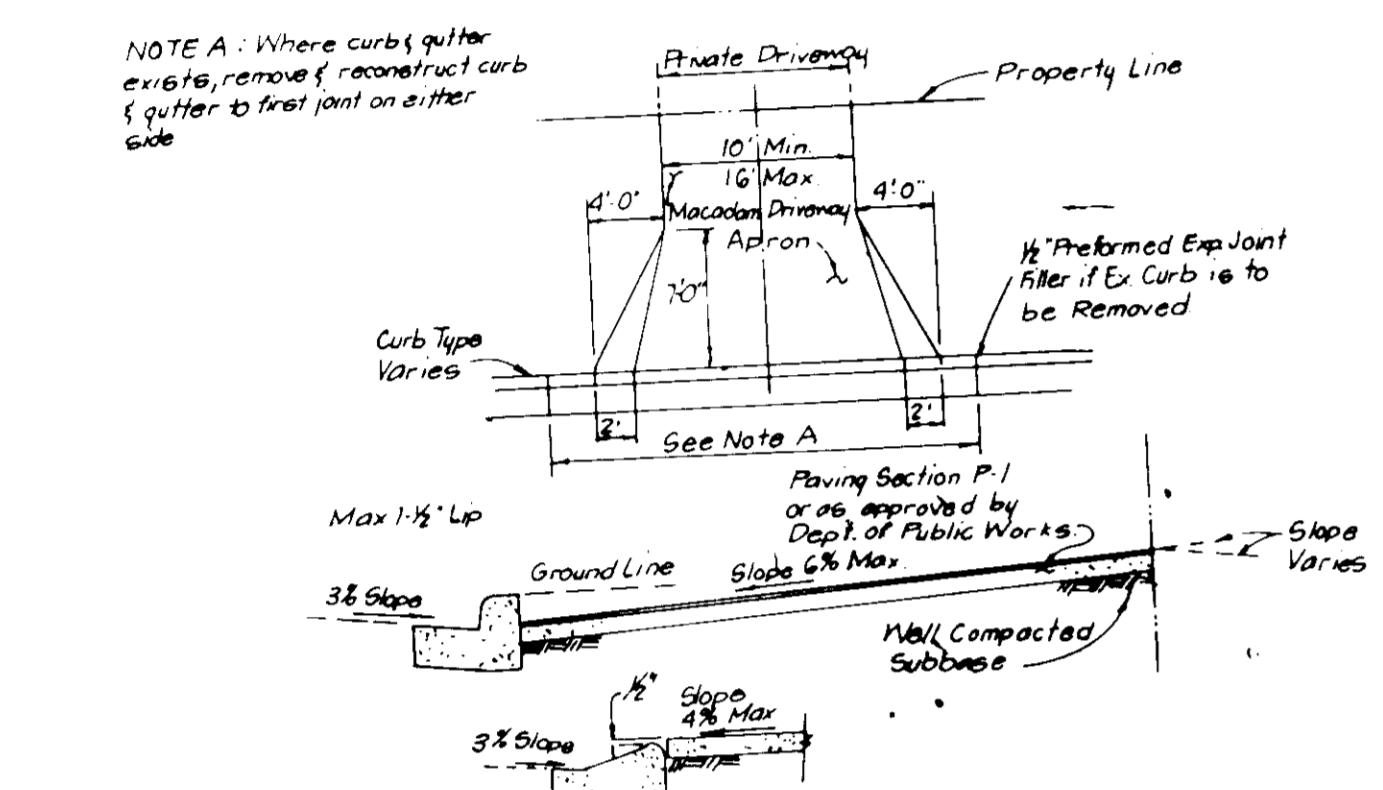 NOTE A : Where curb & gutter
exists, remove & reconstruct curb
& gutter to first joint on either
side
Private Driveway
Property Line
10' Min.
16' Max.
4'-0"
4'-0"
Macadam Driveway
Apron
7'-0"
1/2" Preformed Exp. Joint
Filler if Ex. Curb is to
be Removed
Curb Type
Varies
2'
2'
See Note A
Paving Section P-1
or as approved by
Dept. of Public Works.
Max 1-1/2" Lip
Slope
Varies
Ground Line
Slope 6% Max.
3% Slope
Well Compacted
Subbase
1/2"
Slope
4% Max
3% Slope